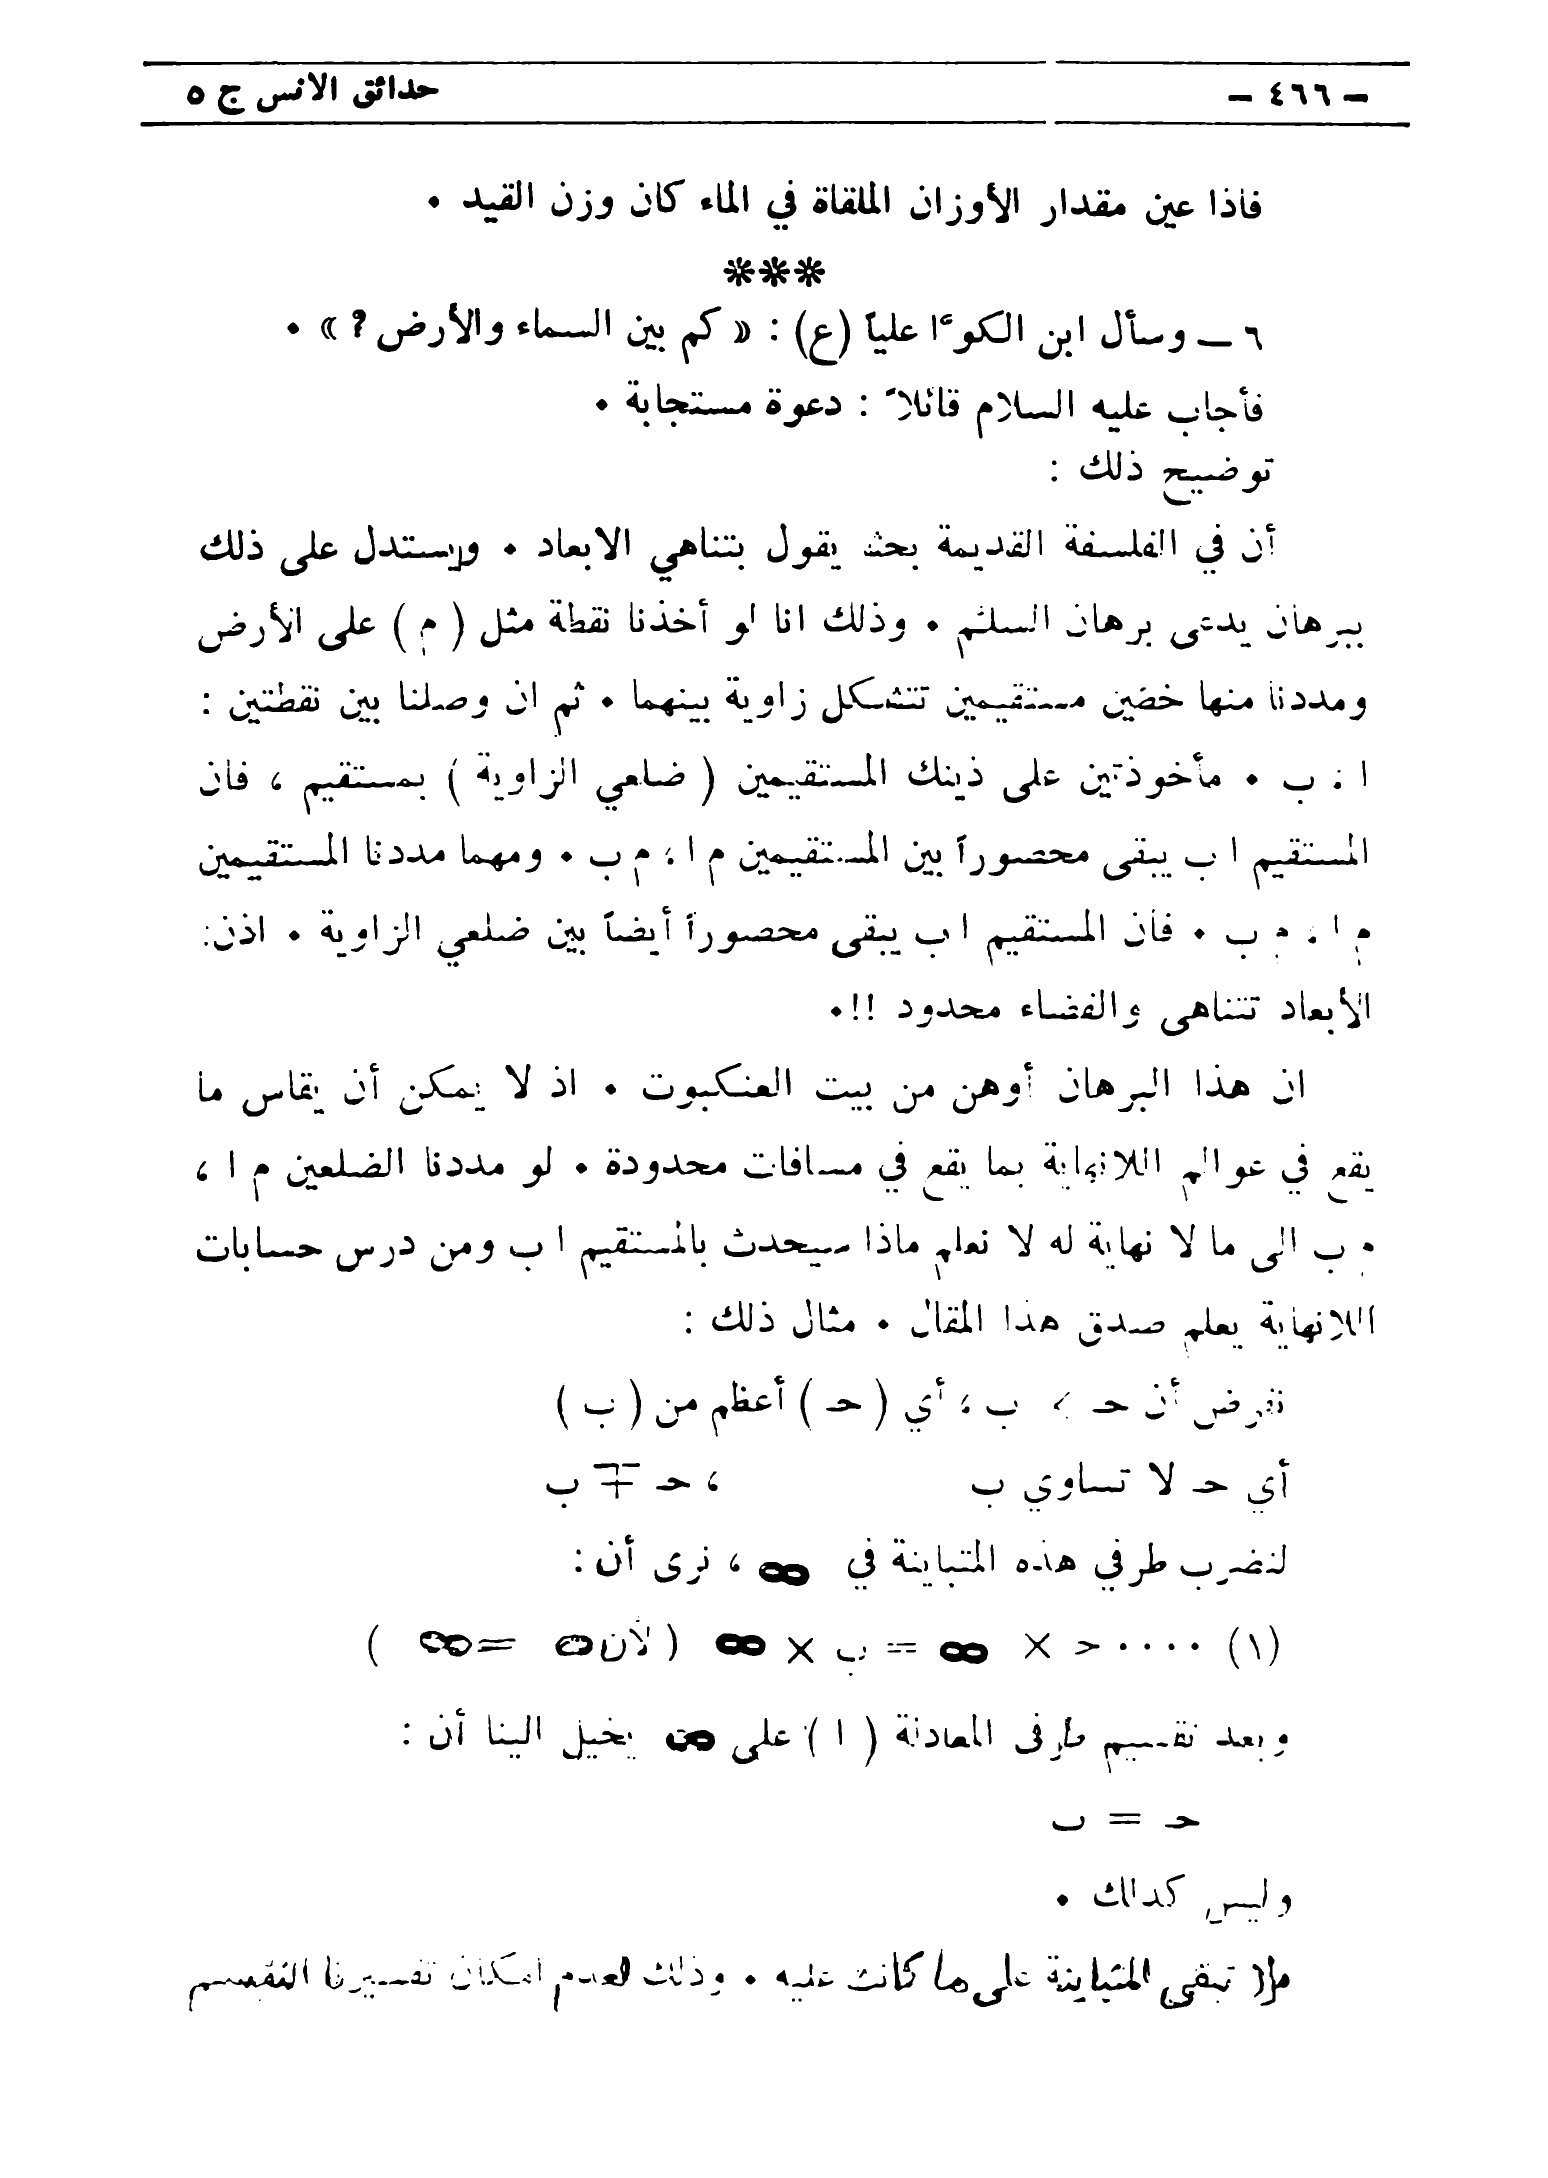 – ٤٦٦ – حدائق الانس ج ٥
فاذا عين مقدار الأوزان الملقاة في الماء كان وزن القيد ٠
***
٦ – وسأل ابن الكوّا علياً (ع) : « كم بين السماء والأرض ? » ٠
فأجاب عليه السلام قائلاً : دعوة مستجابة ٠
توضيح ذلك :
أن في الفلسفة القديمة بحث يقول بتناهي الابعاد ٠ ويستدل على ذلك
ببرهان يدعى برهان السلم ٠ وذلك انا لو أخذنا نقطة مثل ( م ) على الأرض
ومددنا منها خضين مستقيمين تتشكل زاوية بينهما ٠ ثم ان وصلنا بين نقطتين :
ا ، ب ٠ مأخوذتين على ذينك المستقيمين ( ضلعي الزاوية ) بمستقيم ، فان
المستقيم ا ب يبقى محصوراً بين المستقيمين م ا ، م ب ٠ ومهما مددنا المستقيمين
م ا ، م ب ٠ فأن المستقيم ا ب يبقى محصوراً أيضاً بين ضلعي الزاوية ٠ اذن :
الأبعاد تتناهى والفضاء محدود !!٠
ان هذا البرهان أوهن من بيت العنكبوت ٠ اذ لا يمكن أن يقاس ما
يقع في عوالم اللانهاية بما يقع في مسافات محدودة ٠ لو مددنا الضلعين م ا ،
م ب الى ما لا نهاية له لا نعلم ماذا سيحدث بالمستقيم ا ب ومن درس حسابات
اللانهاية يعلم صدق هذا المقال ٠ مثال ذلك :
نفرض أن حـ > ب ، أي ( حـ ) أعظم من ( ب )
أي حـ لا تساوي ب ، حـ ∓ ب
لنضرب طرفي هذه المتباينة في ∞ ، نرى أن :
(١) ٠٠٠٠ حـ × ∞ = ب × ∞ ( لأن ∞ = ∞ )
وبعد تقسيم طرفى المعادلة ( ١ ) على ∞ يخيل الينا أن :
حـ = ب
وليس كذلك ٠
تبقى المتباينة على ما كانت عليه ٠ وذلك لعدم امكان تفسيرنا التقسيم